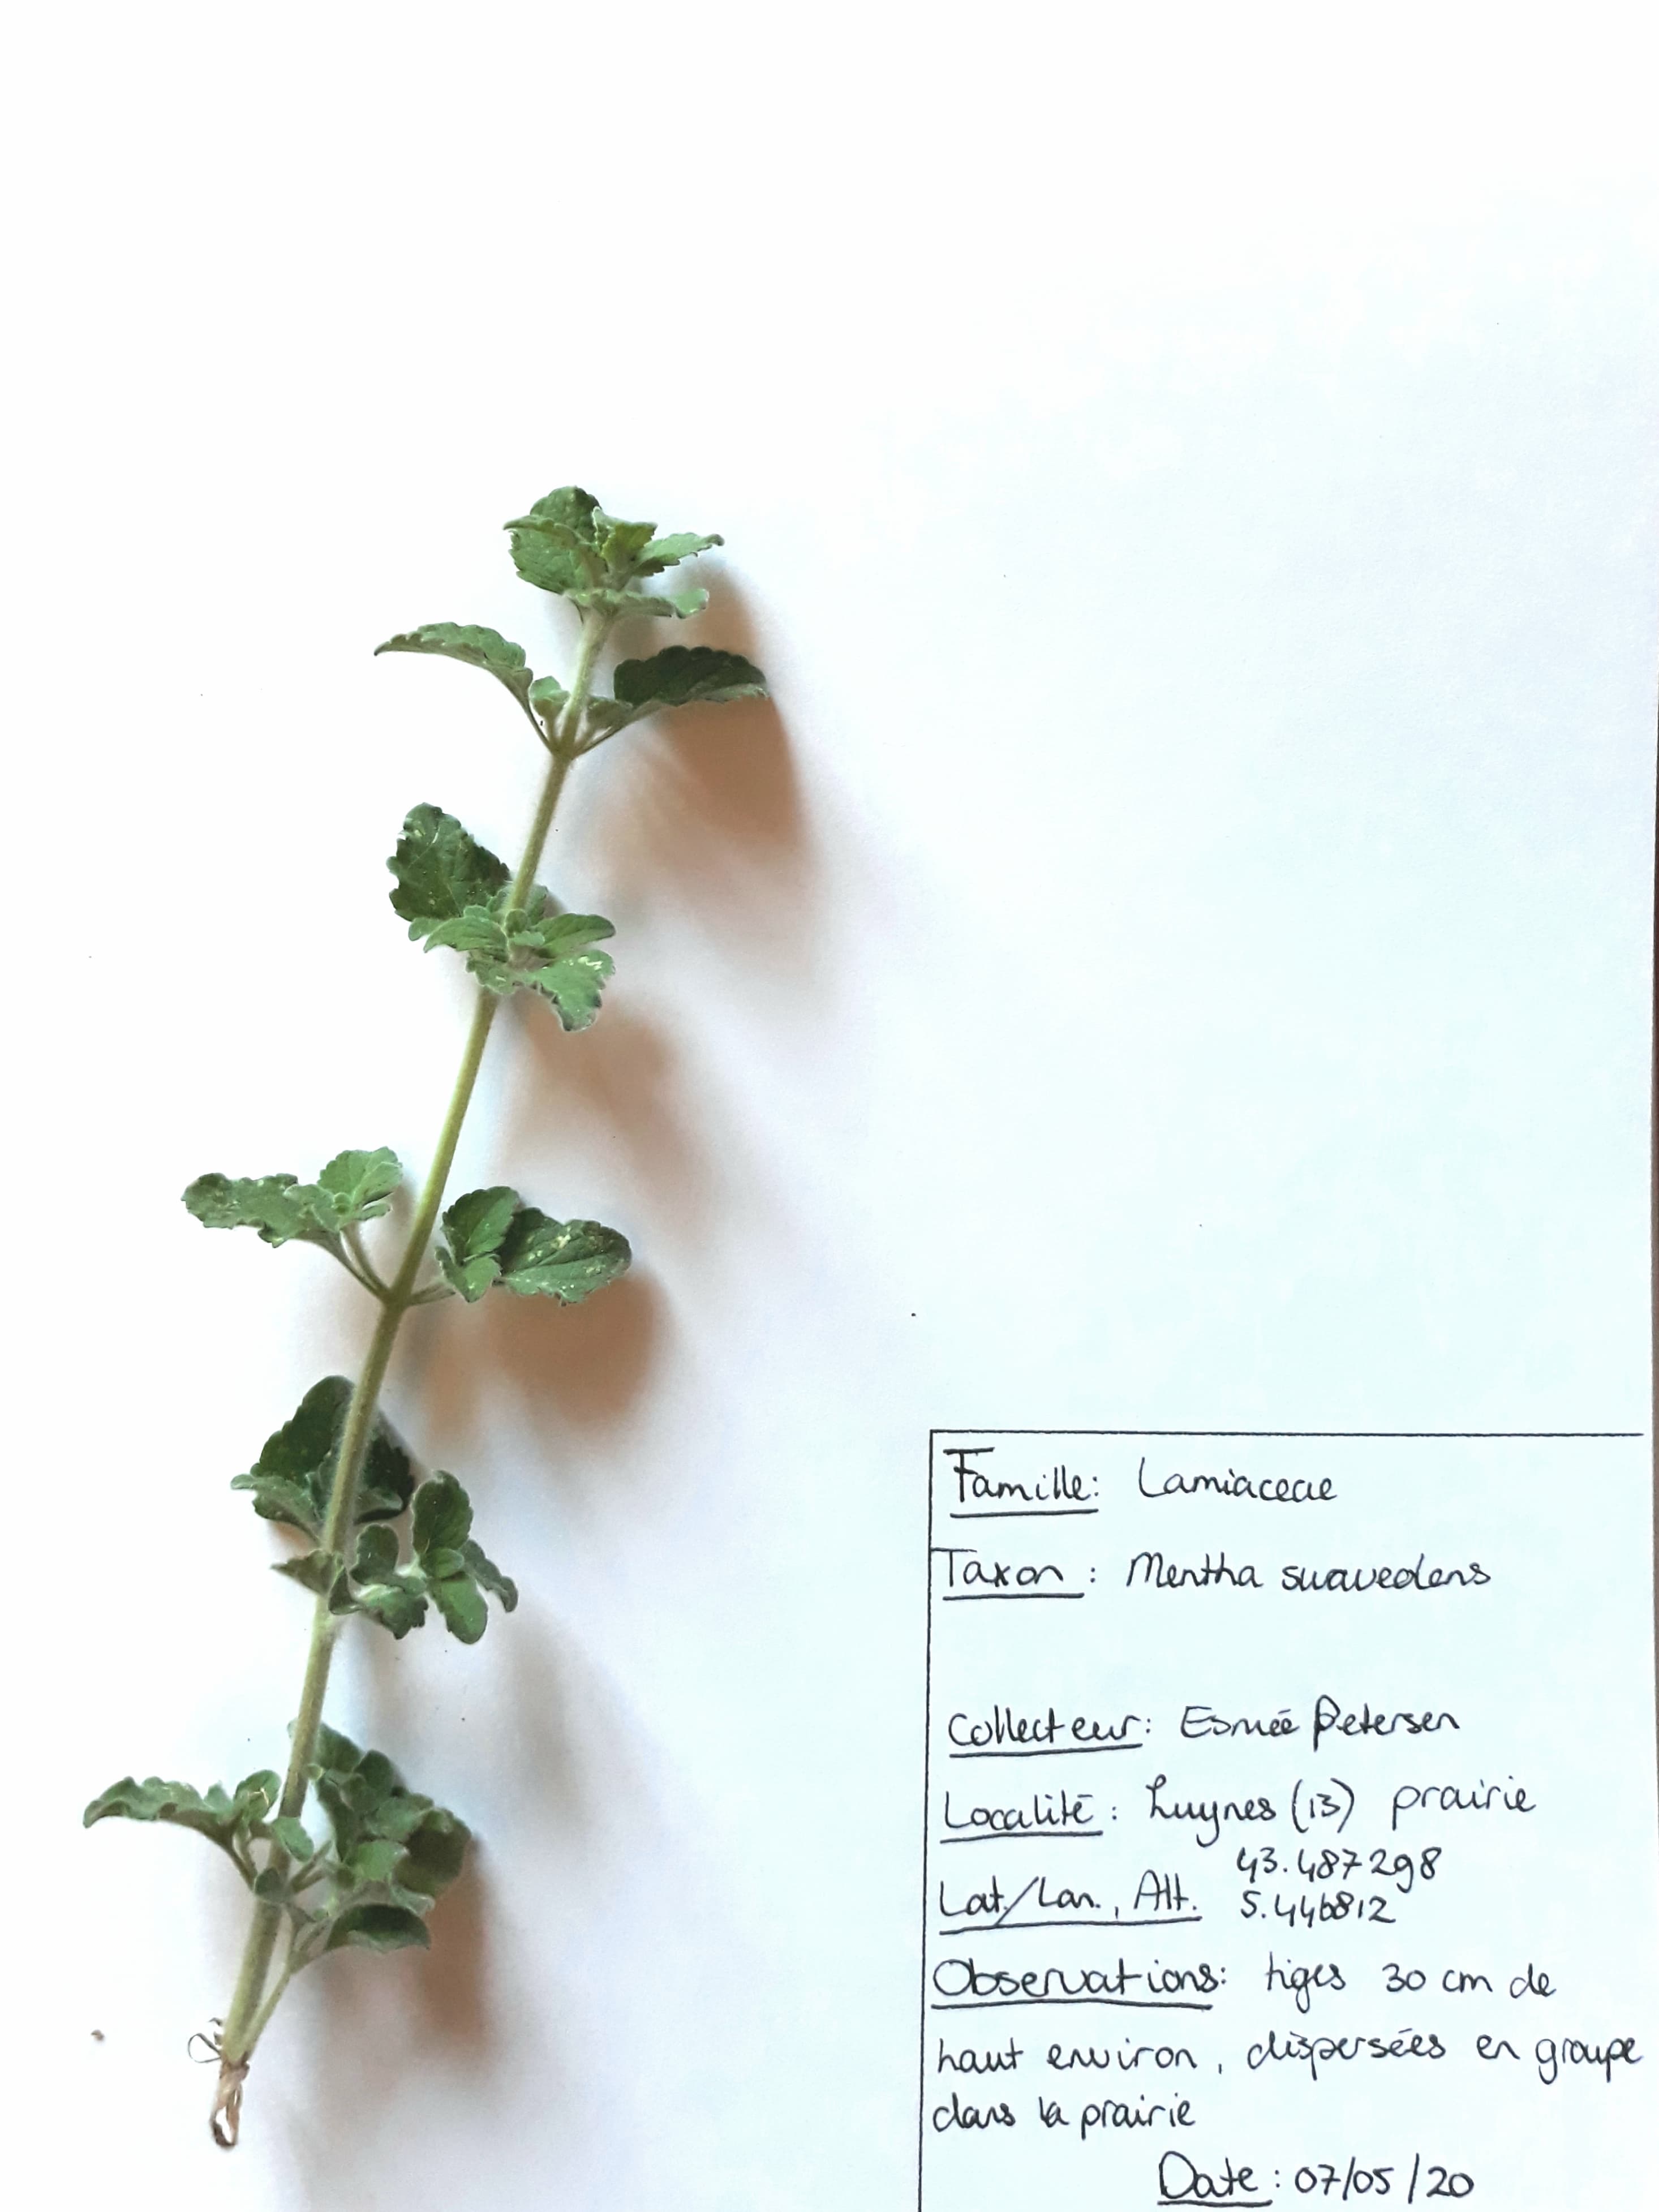 Famille: Lamiaceae
Taxon : Mentha suaveolens
Collecteur: Esmée Petersen
Localité : Luynes (13) prairie
43.487298
Lat./Lon., Alt. 5.446812
Observations: tiges 30 cm de
haut environ, dispersées en groupe
dans la prairie
Date : 07/05/20